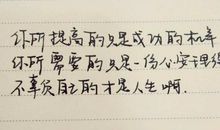 你所提高的只是成功的概率
你所需要的只是一份心安理得
不辜负自己的才是人生啊.